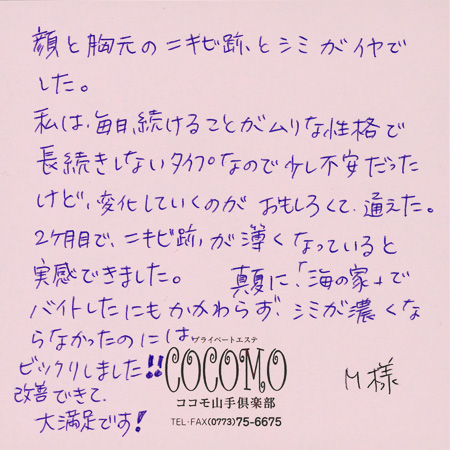 顔と胸元のニキビ跡とシミがイヤで
した。
私は、毎日続けることがムリな性格で
長続きしないタイプなので少し不安だった
けど、変化していくのがおもしろくて、通えた。
2ヶ月目で、ニキビ跡が薄くなっていると
実感できました。 真夏に「海の家」で
バイトしたにもかかわらず、シミが濃くな
らなかったのには
ビックリしました!!
改善できて
大満足です!
プライベートエステ
COCOMO
ココモ山手倶楽部
TEL・FAX(0773)75-6675
M様